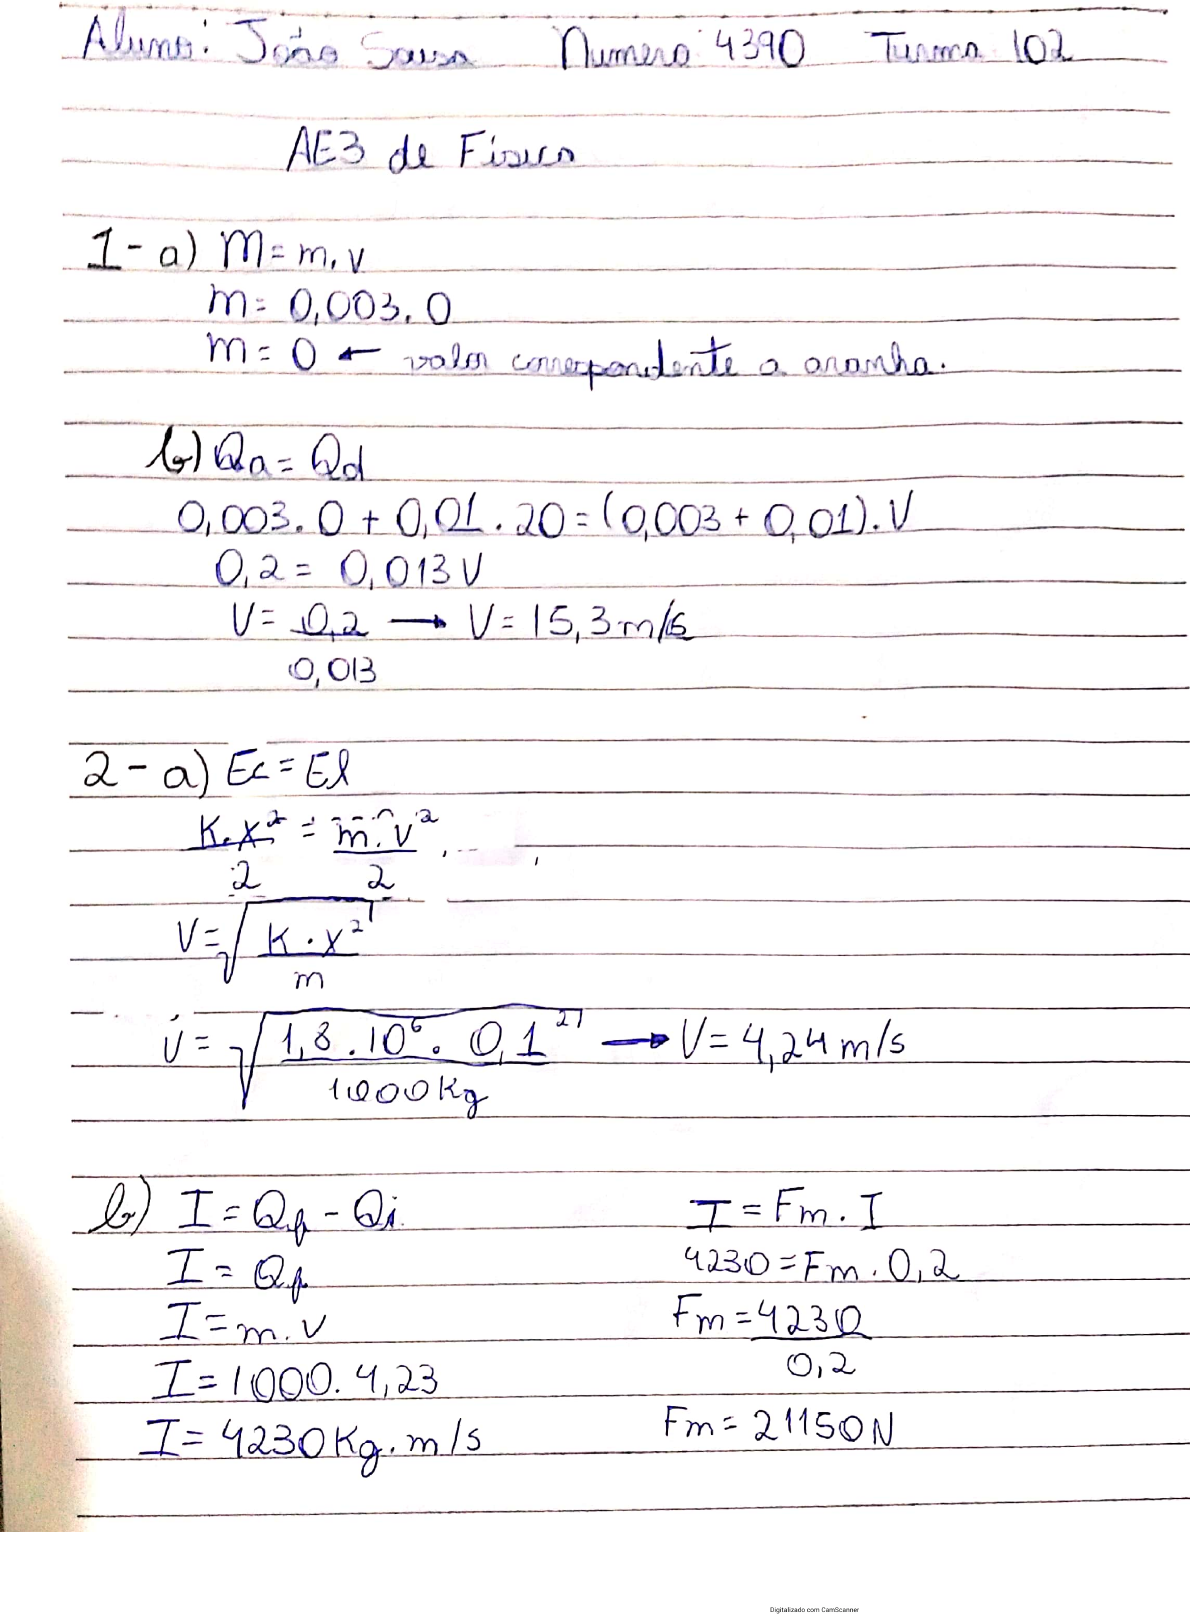 Aluno: João Sousa Numero 4390 Turma 102
AE3 de Física
1- a) M = m. v
m = 0,003. 0
m = 0 ← valor correspondente a aranha.
b) Qa = Qd
0,003. 0 + 0,01. 20 = (0,003 + 0,01). V
0,2 = 0,013 V
V = 0,2 → V = 15,3 m/s
0,013
2- a) Ec = El
K. x² = m. v²
2 2
V = √K. x²
m
v = √1,8. 10⁶. 0,1² → V = 4,24 m/s
1000 Kg
b) I = Qf - Qi
I = Qf
I = m. v
I = 1000. 4,23
I = 4230 Kg. m/s
I = Fm. I
4230 = Fm. 0,2
Fm = 4230
0,2
Fm = 21150 N
Digitalizado com CamScanner